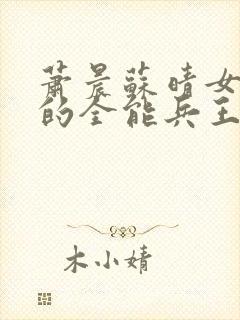 蕭晨蘇晴女
的全能兵王
木小婧